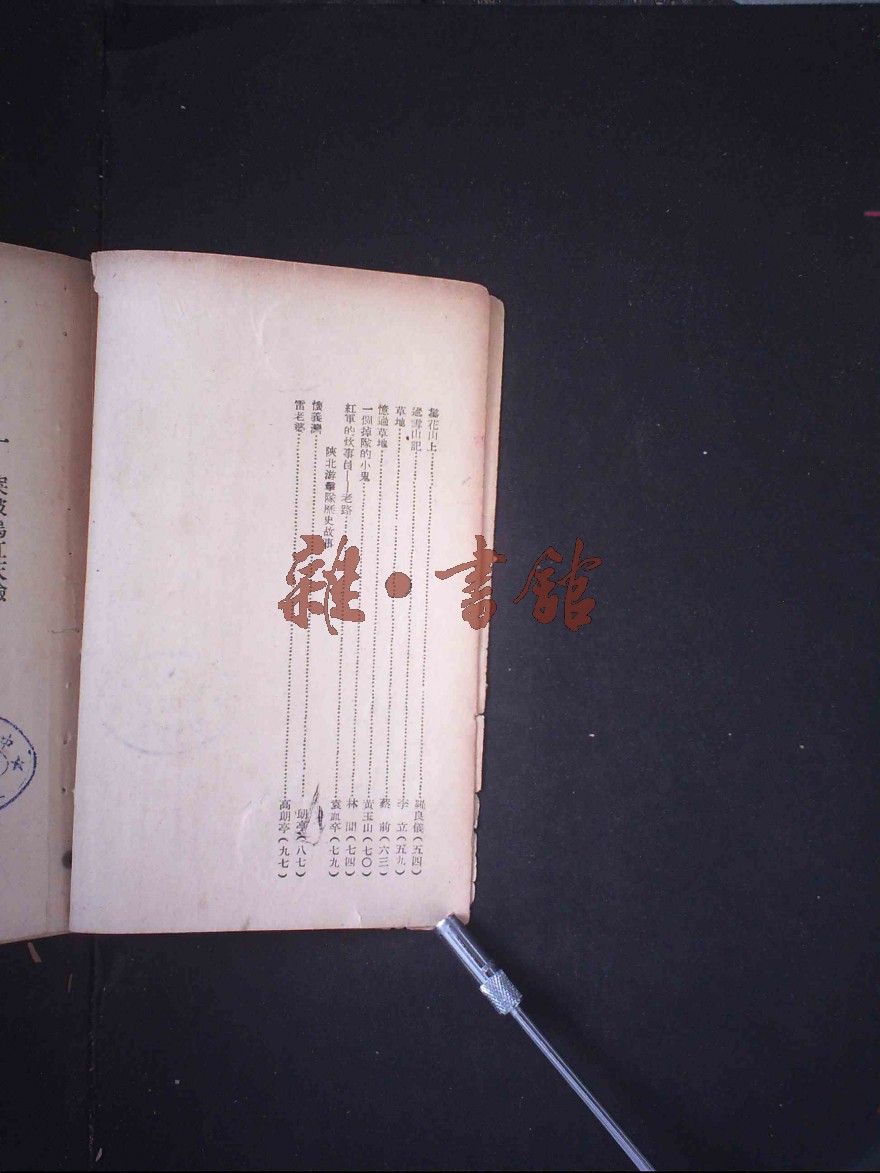 花山上……羅良儀(五四)
過雪山記……李　立(五九)
草地……蔡　前(六三)
憶過草地……黃玉山(七〇)
一個掉隊的小鬼……林　間(七四)
紅軍的炊事員——老路……袁血卒(七九)
陝北游擊隊歷史故事
懷義灣……朗亭(八七)
雷老婆……高朗亭(九七)
一
雜·書館